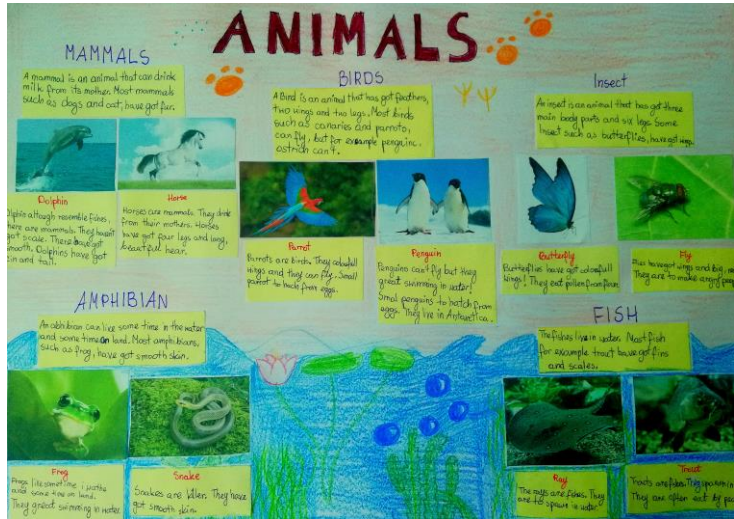 ANIMALS
MAMMALS
A mammal is an animal that can drink
milk from its mother. Most mammals
such as dogs and cat, have got fur.
Dolphin
Dolphin although resemble fishes,
there are mammals. They haven't
got scale. There have got
smooth. Dolphins have got
fin and tail.
Horse
Horses are mammals. They drink
from their mothers. Horses
have got four legs and long,
beautifull hear.
BIRDS
A Bird is an animal that has got feathers,
two wings and two legs. Most birds
such as canaries and parrots,
can fly, but for example penguins,
ostrich can't.
Parrot
Parrots are birds. They colourfull
wings and they can fly. Small
parrot to hach from eggs.
Penguin
Penguins can't fly but they
great swimming in water!
Small penguins to hatch from
eggs. They live in Antarctica.
Insect
An insect is an animal that has got three
main body parts and six legs. Some
Insect such as butterflies, have got wings.
Butterfly
Butterflies have got colorfull
wings! They eat pollen from
Fly
have got wings and big
They are to make angry
AMPHIBIAN
An abhibian can live some time in the water
and some time on land. Most amphibians,
such as frog, have got smooth skin.
Frog
Frogs like sometime i wathe
and some time on land.
They great swimming in water.
Snake
Snakes are killer. They have
got smooth skin.
FISH
The fishes live in water. Most fish
for example trout have got fins
and scales.
Ray
The rays are fishes. They
are to spawn in water.
Trout
Trouts are fishes. They spawn in
They are often eat by